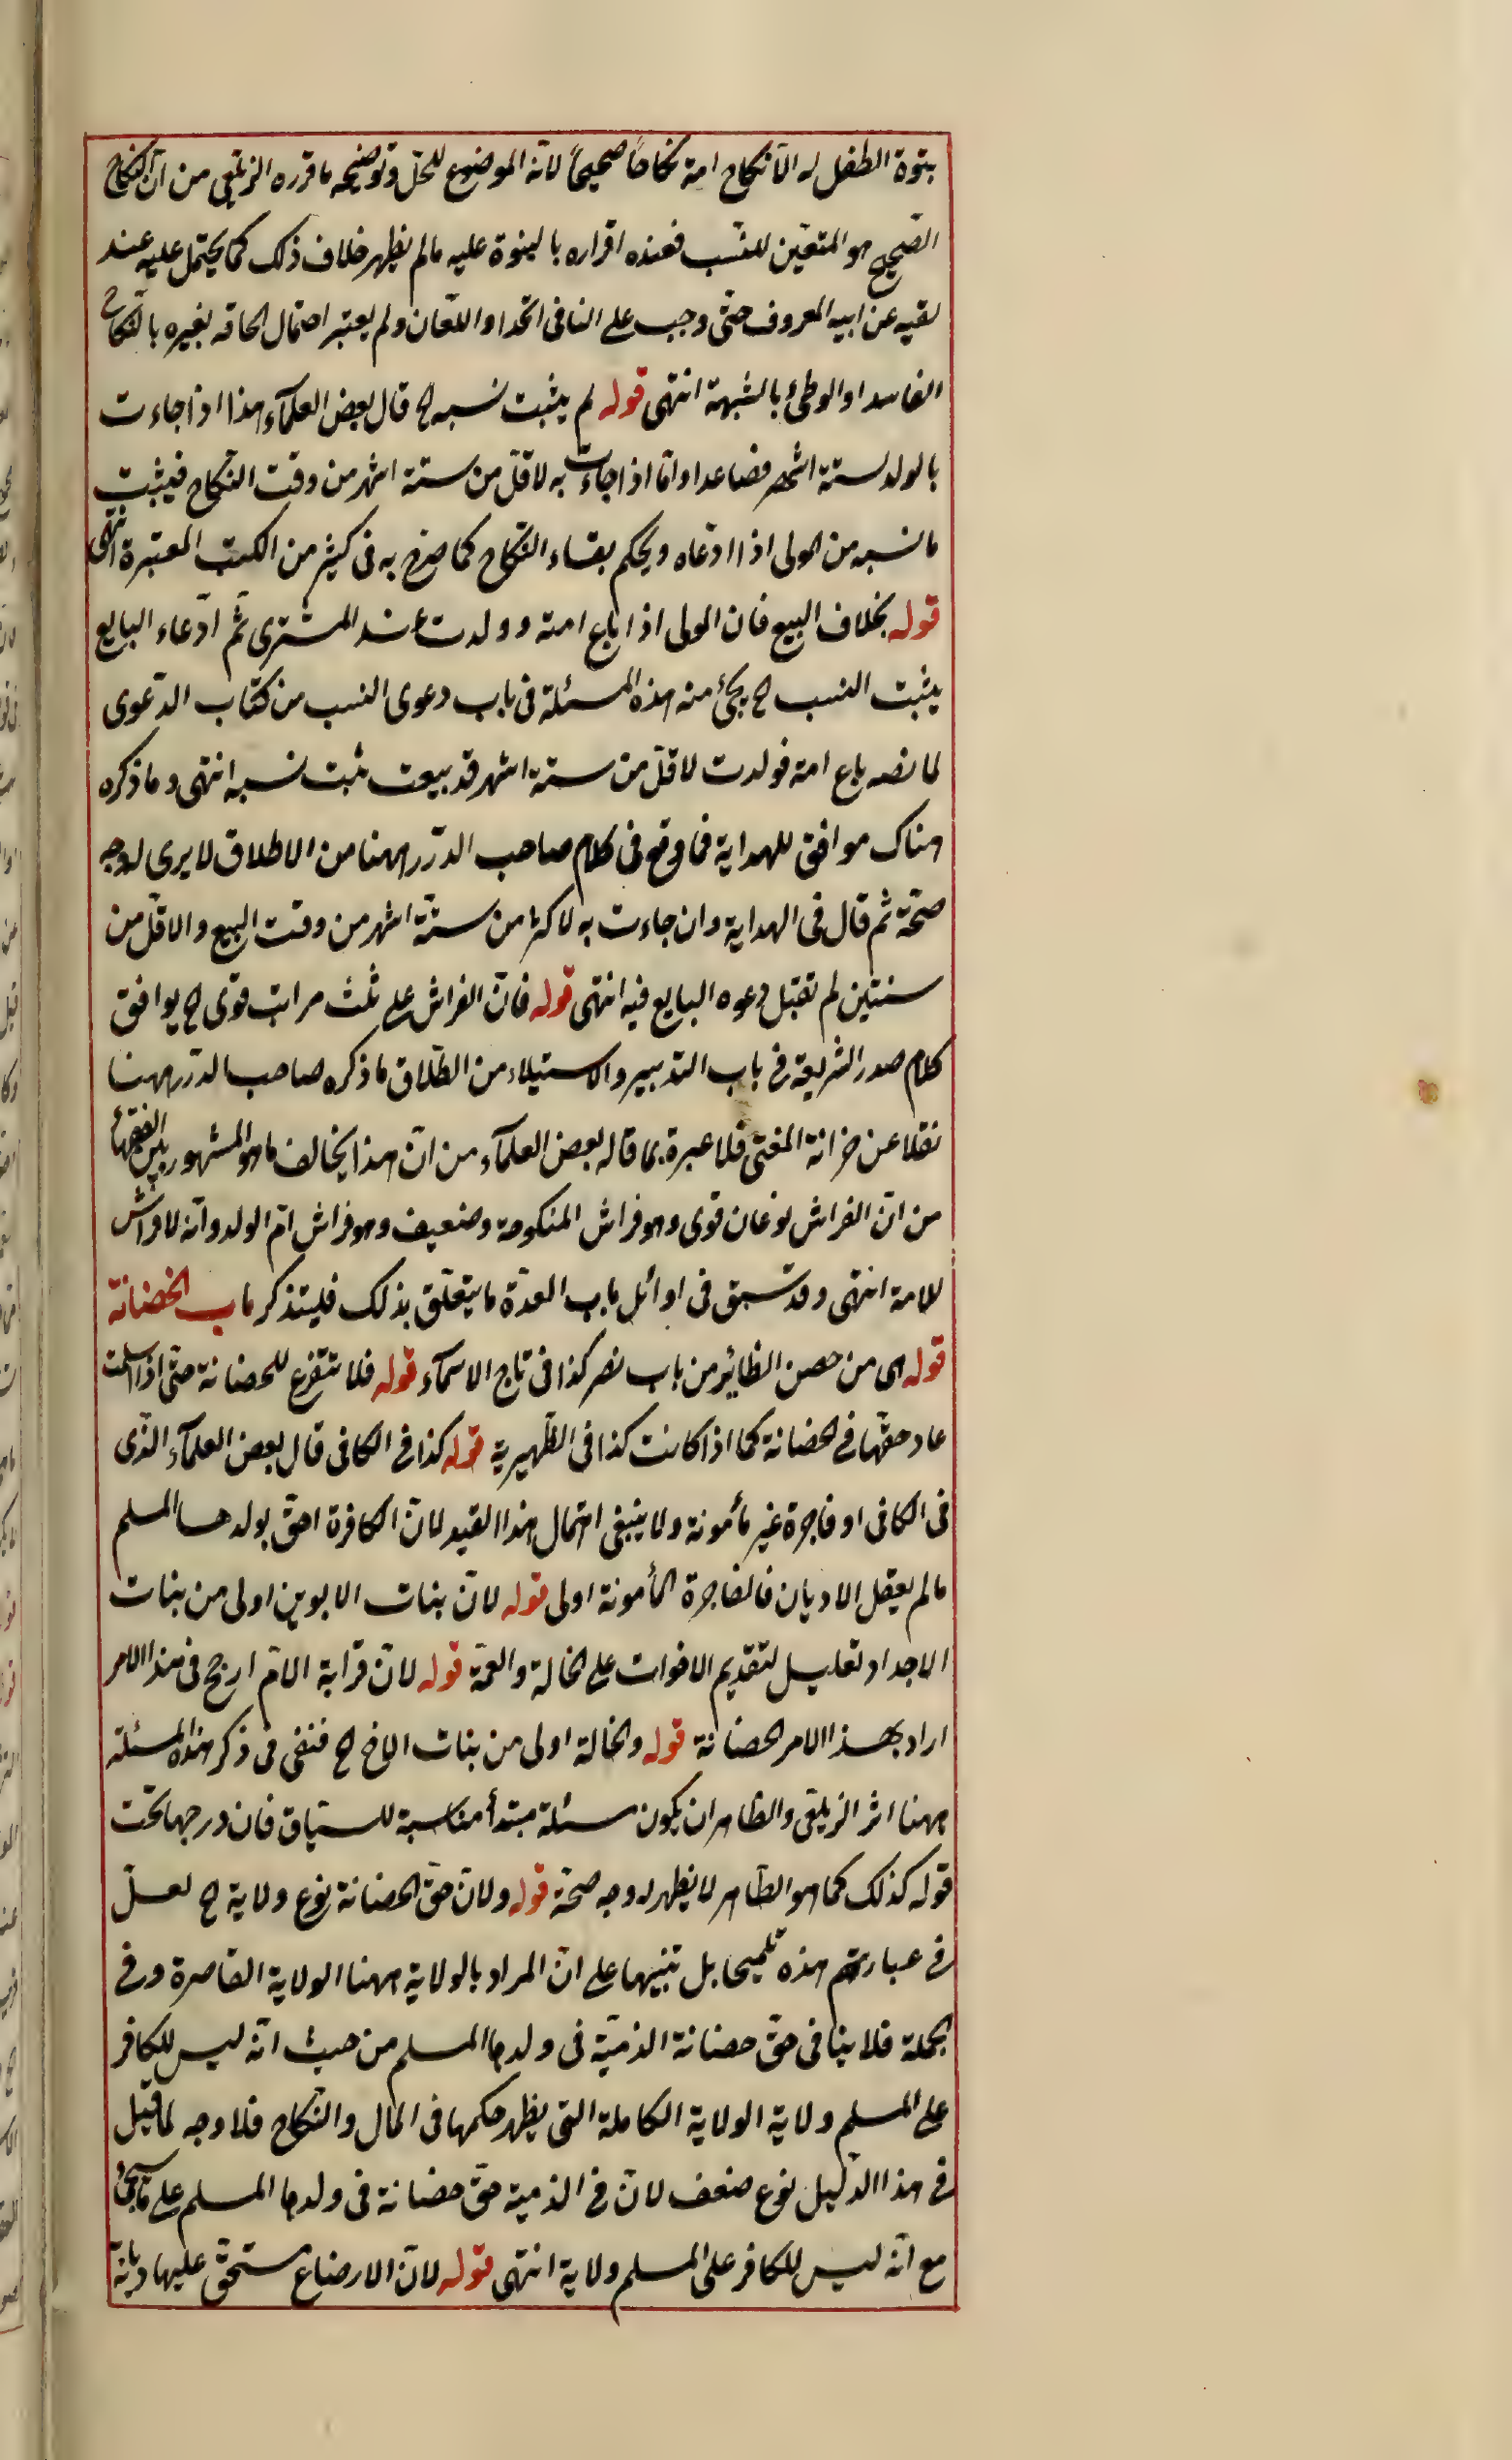 بنوة الطفل له الا نكاح امة نكاحا صحيحاً لانه الموضوع للحل وتوضيحه ما قرره الزيلعي من ان النكاح
الصحيح هو المتعين للنسب فعنده اقراره بالبنوة عليه ما لم يظهر خلاف ذلك كما يحتمل عليه عند
نفيه عن ابيه المعروف حتى وجب على النافى الحد او اللعان ولم يعتبر احتمال الحاقه بغيره بالنكاح
الفاسد او الوطئ بالشبهة انتهى قوله لم يثبت نسبه ح قال بعض العلمآء هذا اذا جاءت
بالولد لستة اشهر فصاعدا واما اذا جاءت به لاقل من ستة اشهر من وقت النكاح فيثبت
ما نسبه من المولى اذا ادعاه ويحكم بفساد النكاح كما صرح به فى كثير من الكتب المعتبرة انتهى
قوله بخلاف البيع فان المولى اذا باع امته وولدت عند المشترى ثم ادعاه البايع
يثبت النسب ح يجئ منه هذه المسئلة فى باب دعوى النسب من كتاب الدعوى
لما نصه باع امة فولدت لاقل من ستة اشهر قد بيعت ثبت نسبه انتهى وما ذكره
هناك موافق للهداية فما وقع فى كلام صاحب الدرر ههنا من الاطلاق لا يرى له وجه
صحة ثم قال فى الهداية وان جاءت به لاكثر من ستة اشهر من وقت البيع والاقل من
سنتين لم تقبل دعوه البايع فيه انتهى قوله فان الفراش على ثلث مراتب قوى ح يوافق
كلام صدر الشريعة فى باب التدبير والاستيلاد من الطلاق ما ذكره صاحب الدرر ههنا
نقلا عن خزانة المفتى فلا عبرة بما قاله بعض العلمآء من ان هذا يخالف ما هو المشهور بين الفقهاء
من ان الفراش نوعان قوى وهو فراش المنكوحة وضعيف وهو فراش ام الولد وانه لا فراش
للامة انتهى وقد سبق فى اوائل باب العدة ما يتعلق بذلك فليتذكر باب الحضانة
قوله هى من حضن الطائر من باب نصر كذا فى تاج الاسمآء قوله فلا تتفرغ للحضانة حتى اذا اسلمت
عاد حقها فى الحضانة كما اذا كانت كذا فى الظهيرية قوله كذا فى الكافى قال بعض العلمآء الذى
فى الكافى او فاجرة غير مأمونة ولا ينبغى اهمال هذا القيد لان الكافرة احق بولدها المسلم
ما لم يعقل الاديان فالفاجرة المأمونة اولى قوله لان بنات الابوين اولى من بنات
الاجداد تعليل لتقديم الاخوات على الخالة والعمة قوله لان قرابة الام ارجح فى هذا الامر
اراد بهذا الامر الحضانة قوله والخالة اولى من بنات الاخ ح فنفى فى ذكر هذه المسئلة
ههنا اثر الزيلعى والظاهر ان يكون مسئلة مبتدأ مناسبة للسياق فان درجها تحت
قوله كذلك كما هو الظاهر لا يظهر له وجه صحة قوله ولان حق الحضانة نوع ولاية ح لعل
فى عبارتهم هذه تلميحا بل تنبيها على ان المراد بالولاية ههنا الولاية القاصرة وفى
الجملة فلا ينافى حق حضانة الذمية فى ولدها المسلم من حيث انه ليس للكافر
على المسلم ولاية الولاية الكاملة التى يظهر حكمها فى المال والنكاح فلا وجه لما قيل
فى هذا الدليل نوع ضعف لان فى الذمية حق حضانة فى ولدها المسلم على ما يجئ
مع انه ليس للكافر على المسلم ولاية انتهى قوله لان الارضاع مستحق عليها ديانة